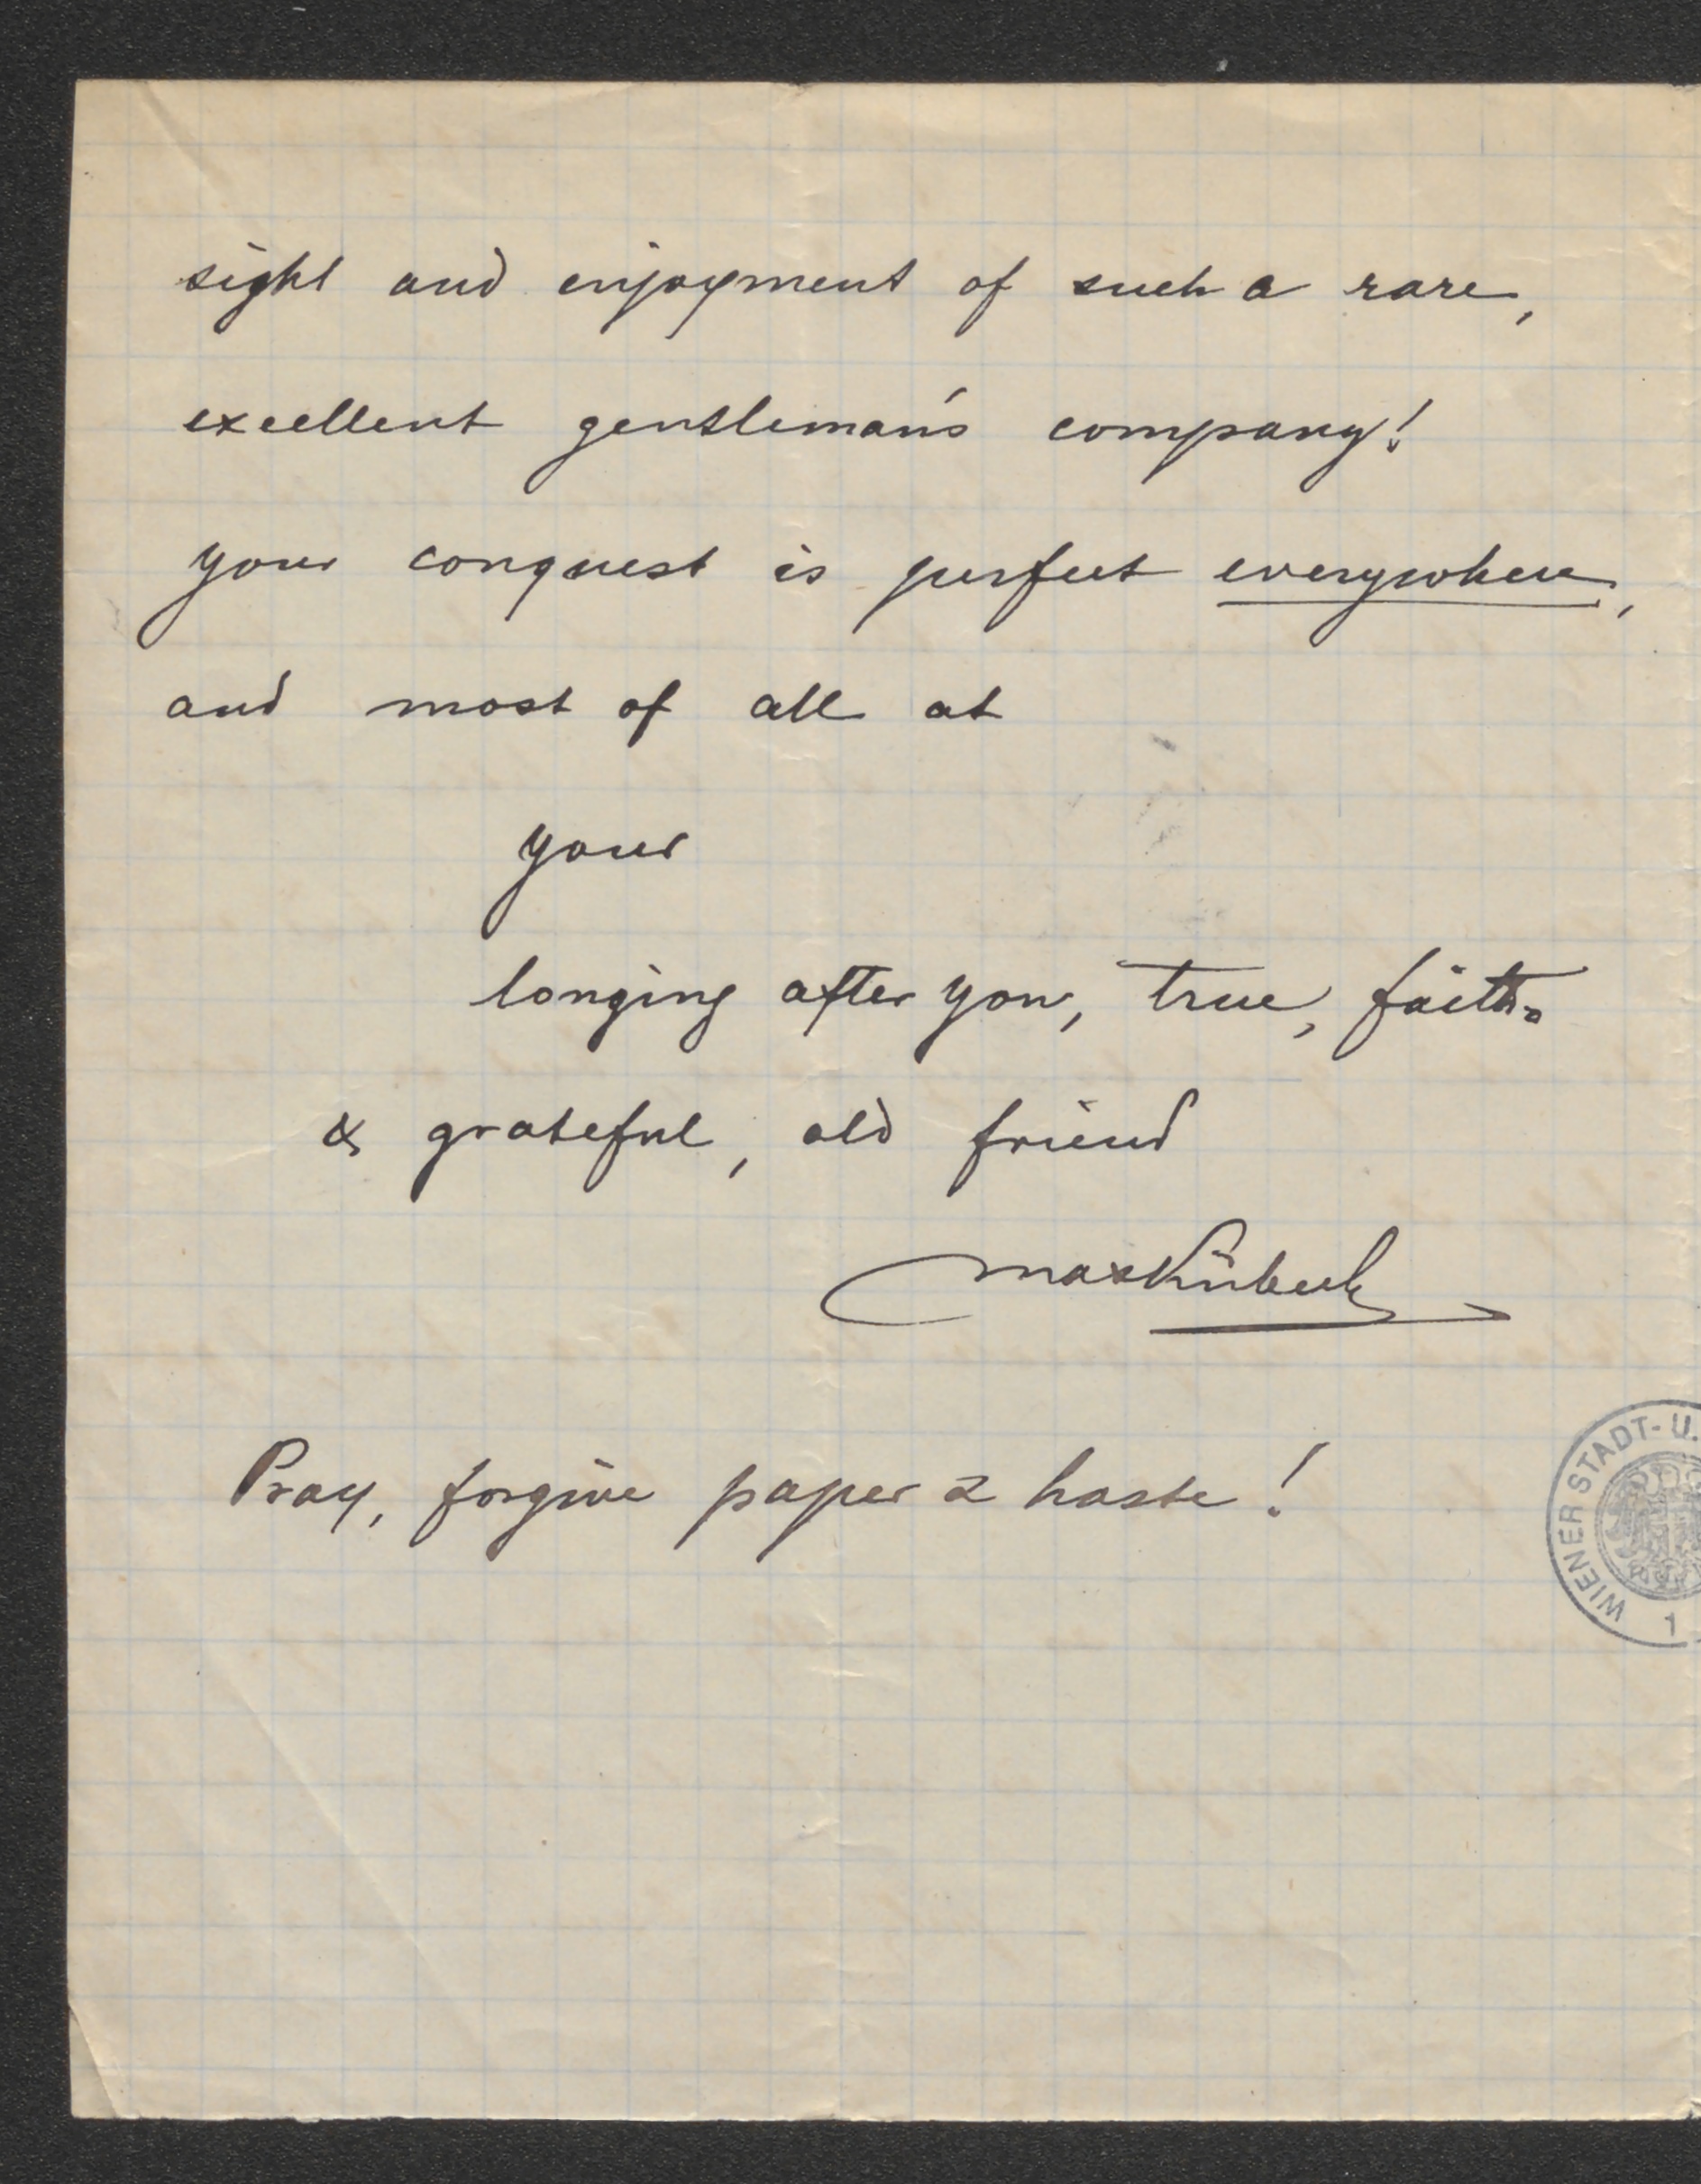 sight and enjoyment of such a rare,
excellent gentleman's company!
your conquest is perfect everywhere,
and most of all at
your
longing after you, true, faith-
& grateful, old friend
Max Kübeck
Pray, forgive paper & haste!
WIENER STADT- U.
1